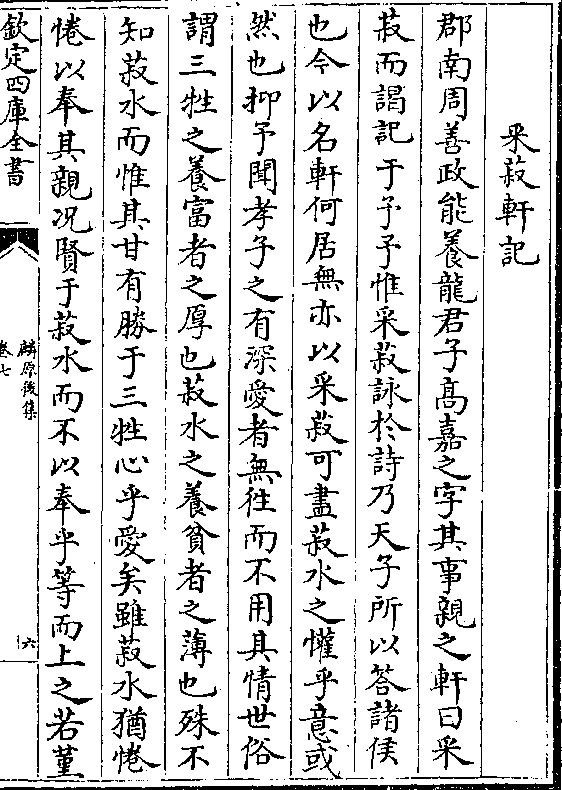 采菽軒記
郡南周善政能養龍君子髙嘉之字其事親之軒曰采
菽而謁記于予予惟采菽詠於詩乃天子所以答諸侯
也今以名軒何居無亦以采菽可盡菽水之懽乎意或
然也抑予聞孝子之有深愛者無徃而不用其情世俗
謂三牲之養富者之厚也菽水之養貧者之薄也殊不
知菽水而惟其甘有勝于三牲心乎愛矣雖菽水猶惓
惓以奉其親况賢于菽水而不以奉乎等而上之若堇
欽定四庫全書
麟原後集
卷七
六